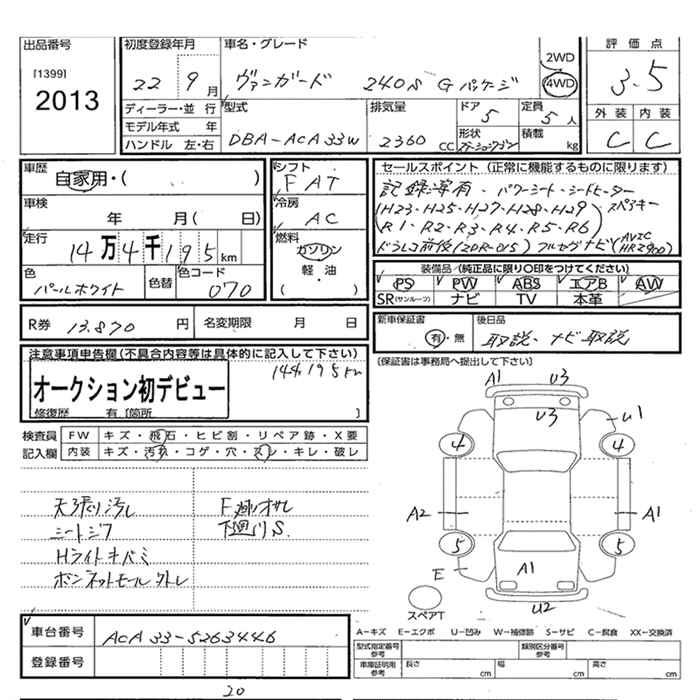 出品番号
[1399]
2013
初度登録年月
22年9月
車名・グレード
ヴァンガード 240S Gパッケージ
2WD
4WD
評価点
3.5
外装 内装
C C
ディーラー・並行
モデル年式 年
ハンドル 左・右
型式
DBA-ACA33W
排気量
2360 CC
ドア
5
定員
5人
形状
ステーションワゴン
積載
kg
車歴
自家用・( )
車検
年 月( 日)
走行
14万4千195km
色
パールホワイト
色替
色コード
070
シフト
FAT
冷房
AC
燃料
ガソリン
軽・油
( )
セールスポイント(正常に機能するものに限ります)
記録簿有・パワーシート・シートヒーター
(H23・H25・H27・H28・H29) スペアキー
(R1・R2・R3・R4・R5・R6)
ドラレコ前後(ZDR-015) フルセグナビ(AVIC HRZ900)
装備品(純正品に限り○印をつけてください)
PS PW ABS エアB AW
SR(サンルーフ) ナビ TV 本革
R券 13.870円
名変期限 月 日
新車保証書
有・無
後日品
取説・ナビ取説
[保証書は事務局へ提出して下さい]
注意事項申告欄(不具合内容等は具体的に記入して下さい)
144195km
オークション初デビュー
修復歴 有[箇所 ]
検査員
記入欄
FW キズ・飛石・ヒビ割・リペア跡・X要
内装 キズ・汚れ・コゲ・穴・スレ・キレ・破レ
天張り汚レ
シートシワ
Hライトキバミ
ボンネットモール外レ
F廻りオサレ
下廻りS.
A1 U3
U3
U1
4 4
A2 A1
5 5
E
A1
U2
スペアT
A-キズ E-エクボ U-凹み W-補修跡 S-サビ C-腐食 XX-交換済
車台番号
ACA33-5263446
登録番号
型式指定番号
参考
類別区分番号
参考
車庫証明用
参考
長さ cm
幅 cm
高さ cm
20